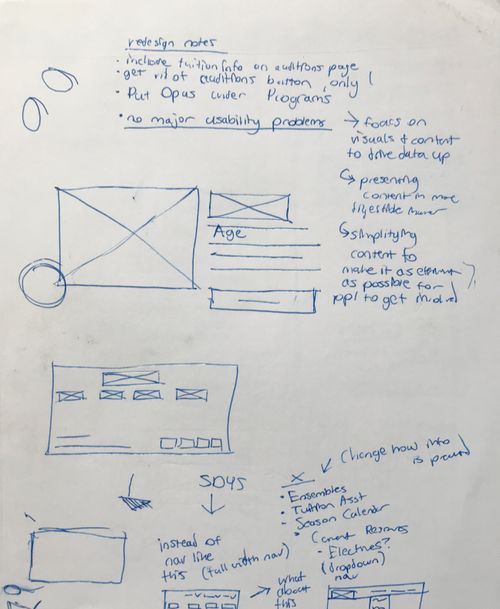 redesign notes
• include tuition info on auditions page
• get rid of auditions button, only 1
• Put Opus under Programs
• no major usability problems
→ focus on
visuals + content
to drive data up
↳ presenting
content in more
digestible
↳ simplifying
content to
make it as
as possible for
ppl to get involved
Age
SDYS
Change how info
is
X
• Ensembles
• Tuition Asst
- Season Calendar
•
- Electives?
(dropdown)
nav
instead of
nav like
this (full width nav)
→ what
about
this